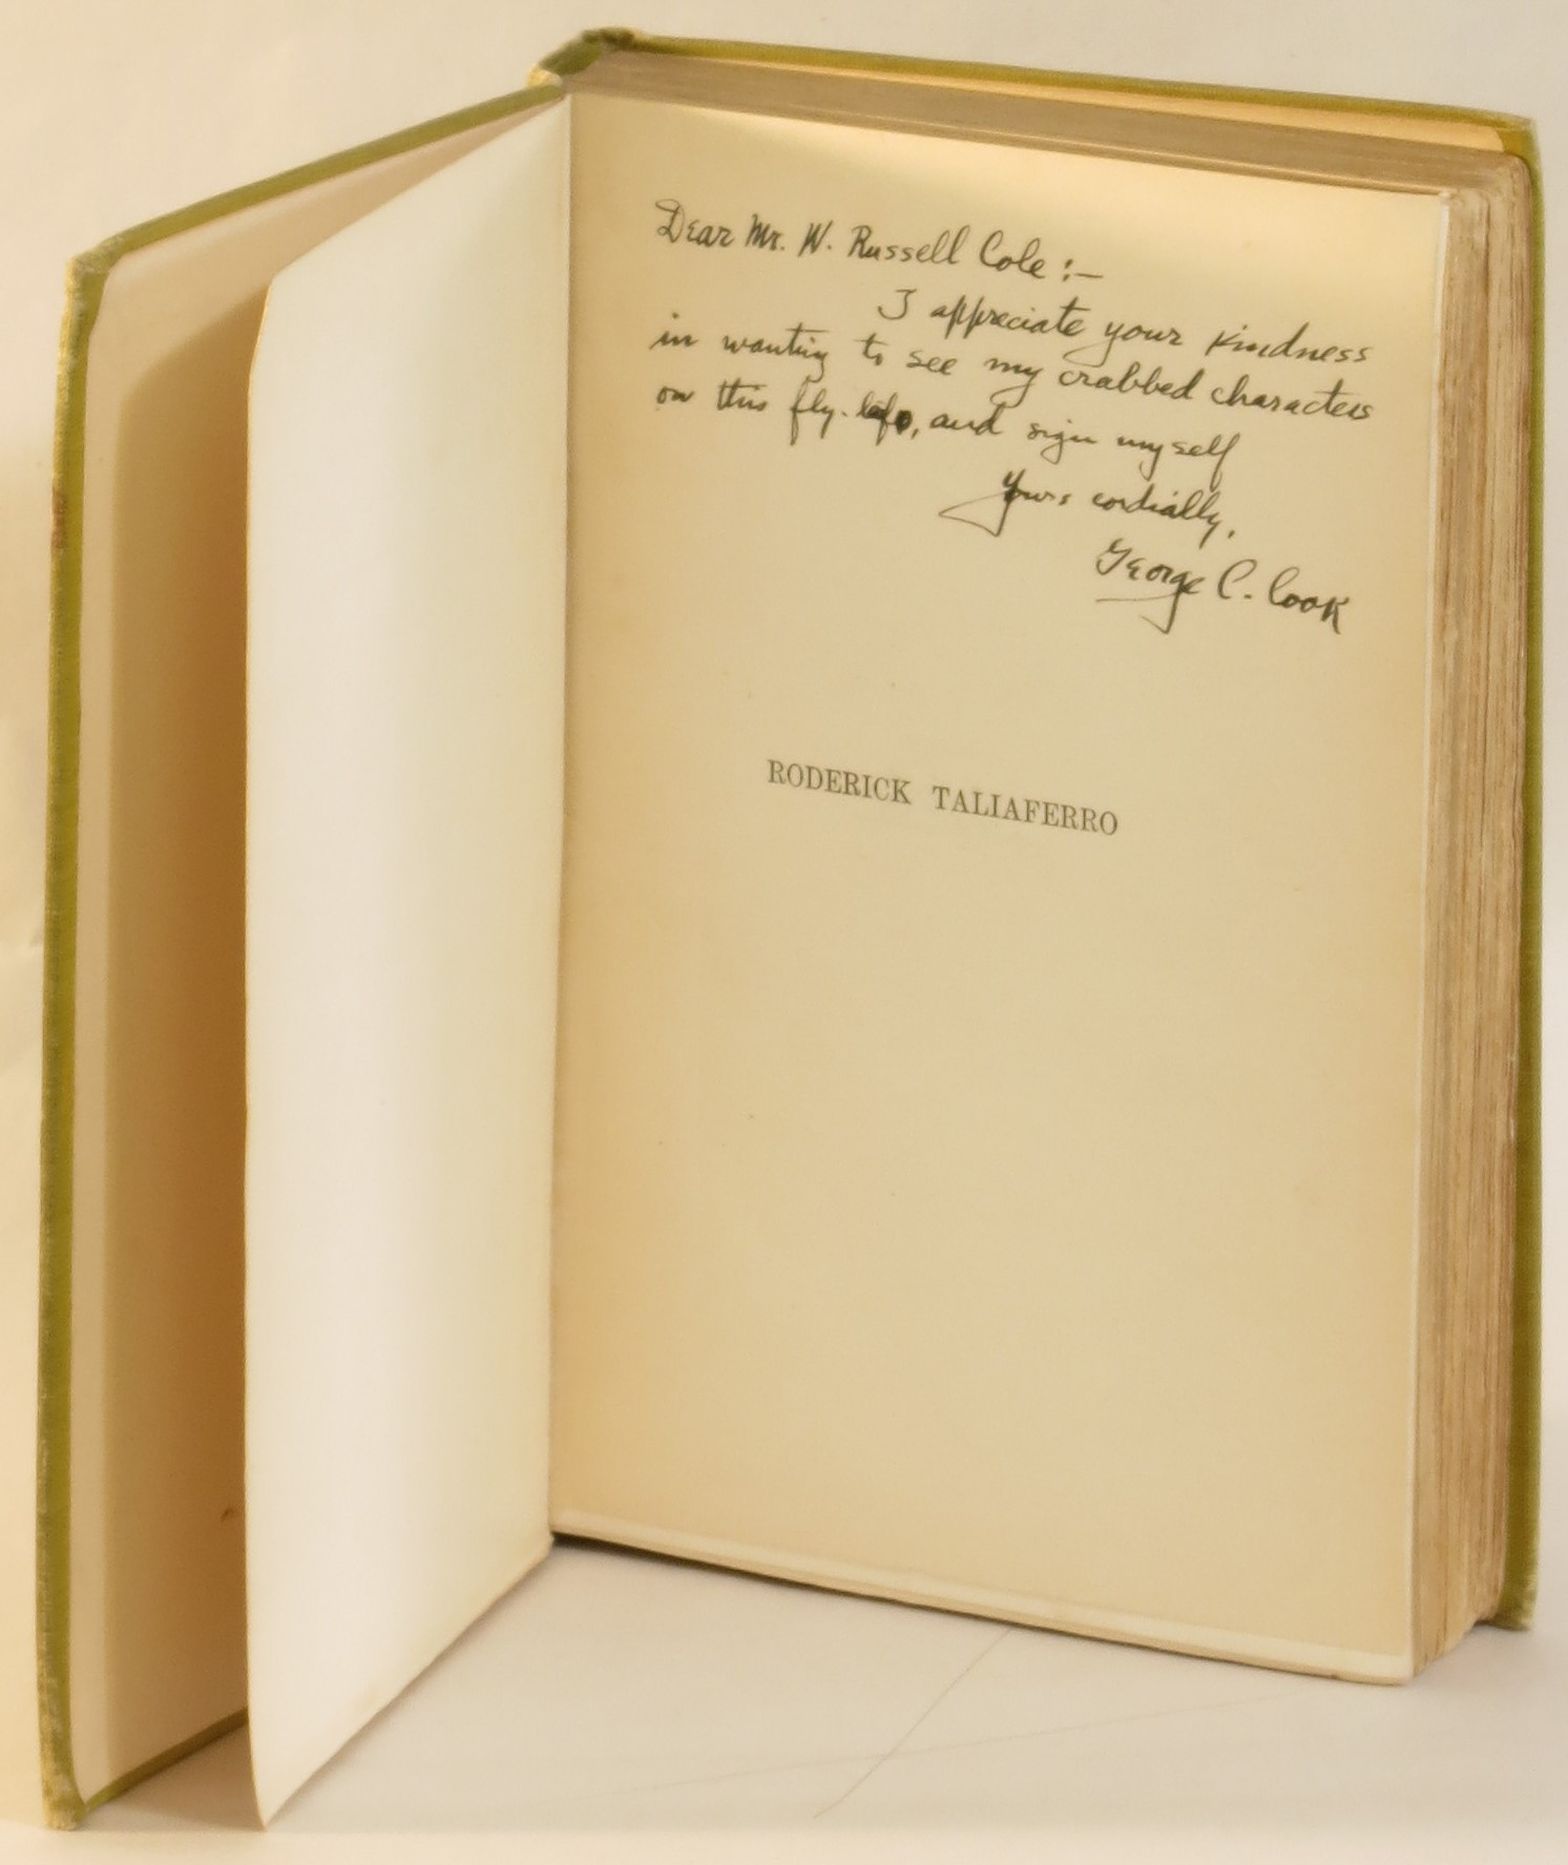 Dear Mr. W. Russell Cole :—
I appreciate your kindness
in wanting to see my crabbed characters
on this fly-, and sign myself
Yours cordially,
George C. Cook
RODERICK TALIAFERRO